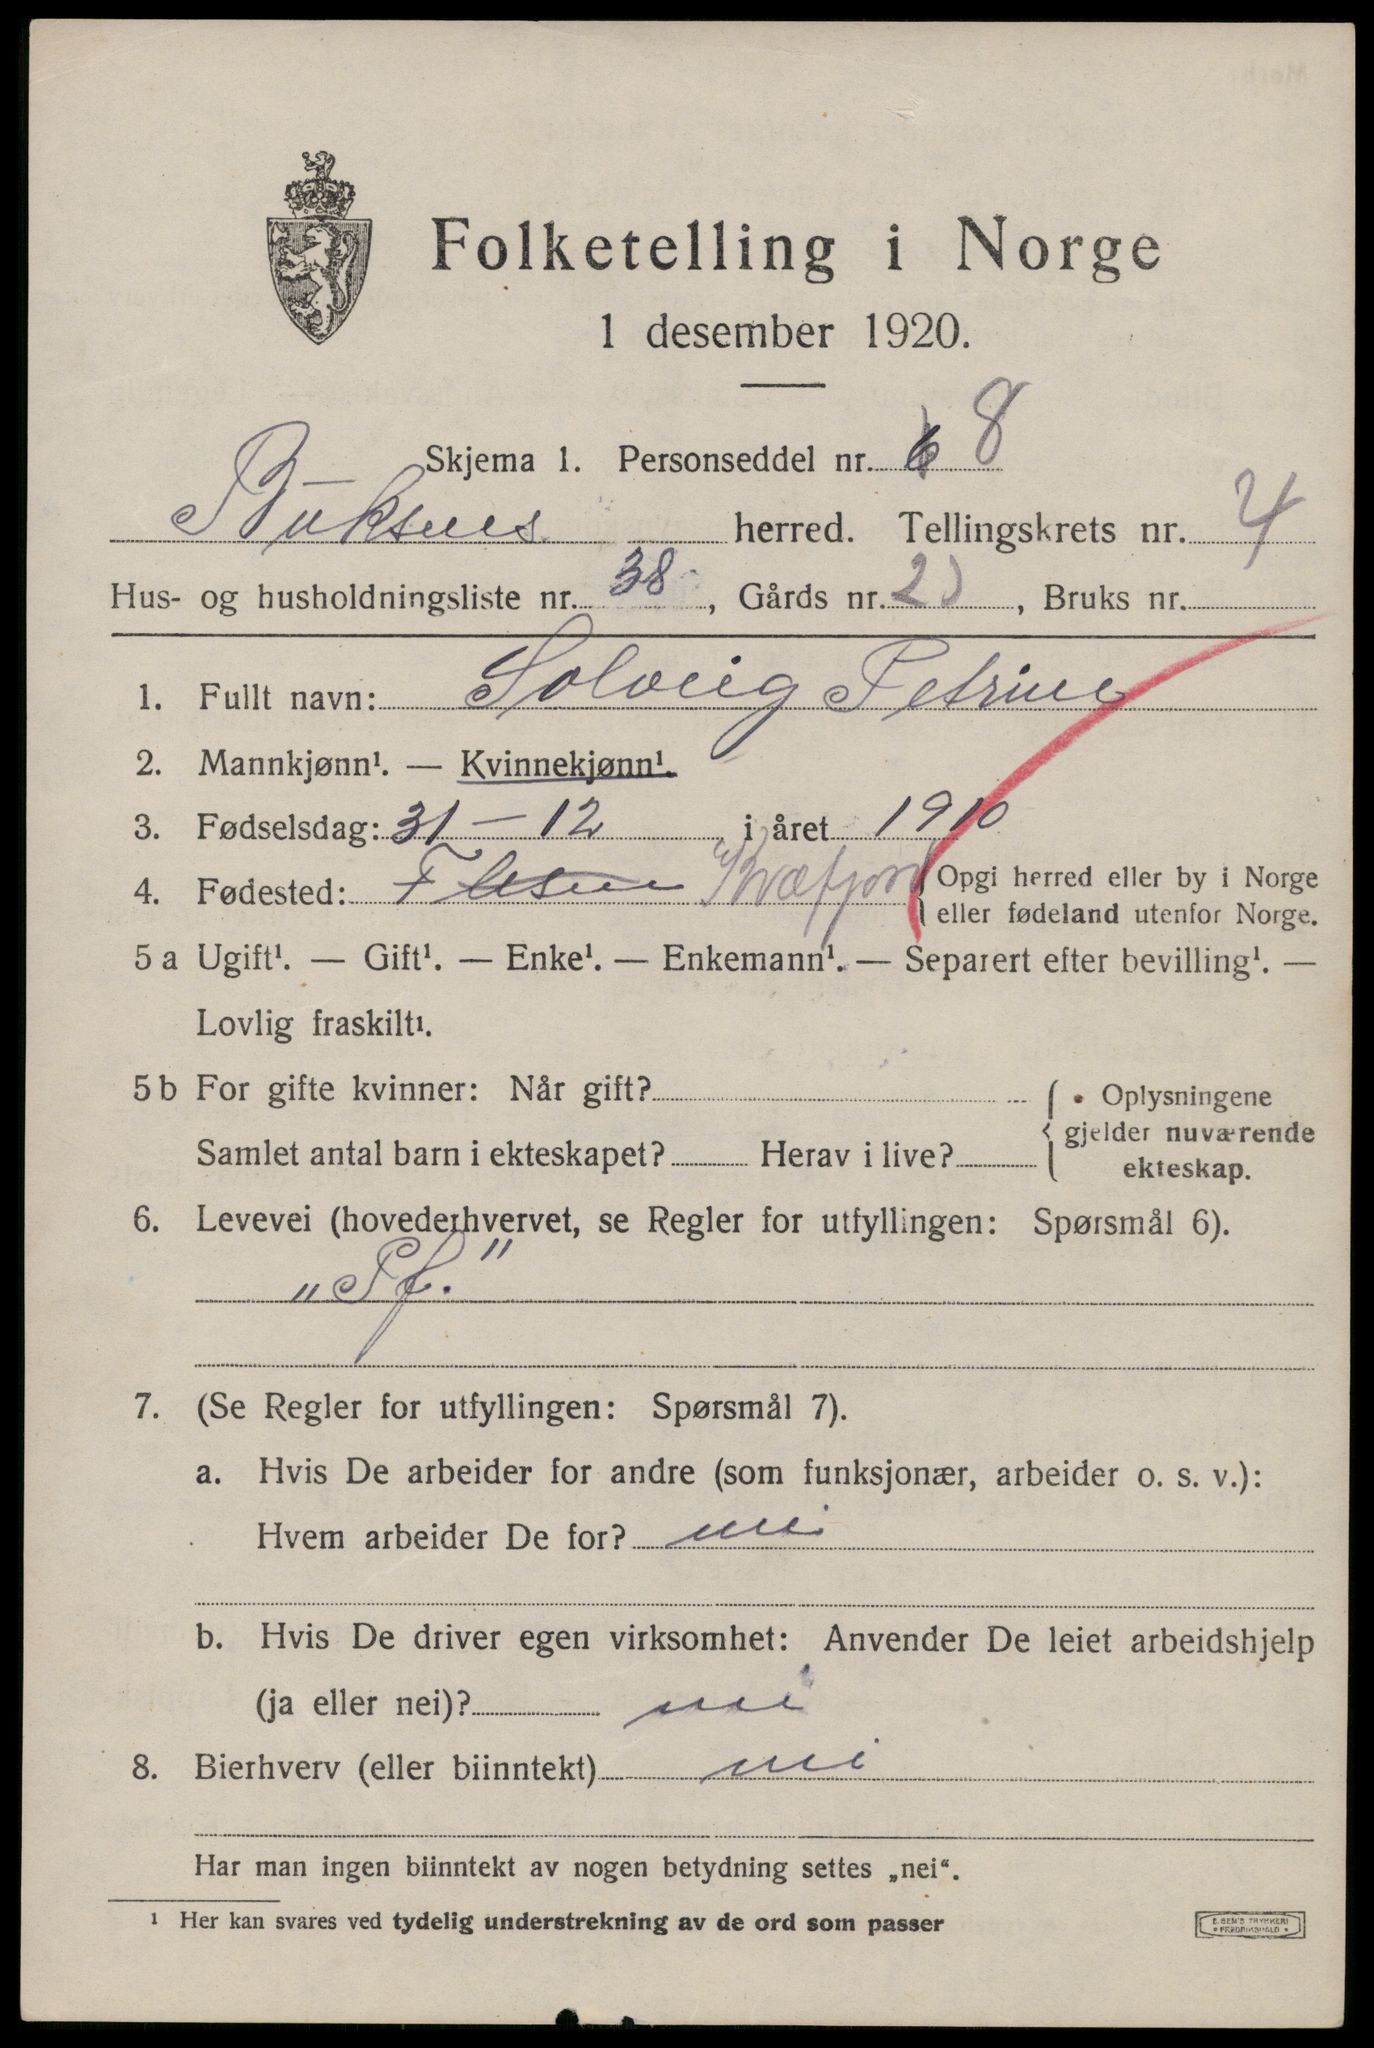 Folketelling i Norge
1 desember 1920.
Skjema 1. Personseddel nr. 6 8
Buksnes herred. Tellingskrets nr. 4
Hus- og husholdningsliste nr. 38, Gårds nr. 2, Bruks nr.
1. Fullt navn: Solveig Petrine
2. Mannkjønn¹. — Kvinnekjønn¹.
3. Fødselsdag: 31 - 12 i året 1910
4. Fødested: Kvæfjord Opgi herred eller by i Norge
eller fødeland utenfor Norge.
5 a Ugift¹. — Gift¹. — Enke¹. — Enkemann¹. — Separert efter bevilling¹. —
Lovlig fraskilt¹.
5 b For gifte kvinner: Når gift? Oplysningene
gjelder nuværende
Samlet antal barn i ekteskapet? Herav i live? ekteskap.
6. Levevei (hovederhvervet, se Regler for utfyllingen: Spørsmål 6).
„Pf."
7. (Se Regler for utfyllingen: Spørsmål 7).
a. Hvis De arbeider for andre (som funksjonær, arbeider o. s. v.):
Hvem arbeider De for? nei
b. Hvis De driver egen virksomhet: Anvender De leiet arbeidshjelp
(ja eller nei)? nei
8. Bierhverv (eller biinntekt) nei
Har man ingen biinntekt av nogen betydning settes „nei“.
¹ Her kan svares ved tydelig understrekning av de ord som passer
E. SEM'S TRYKKERI
FREDRIKSHALD